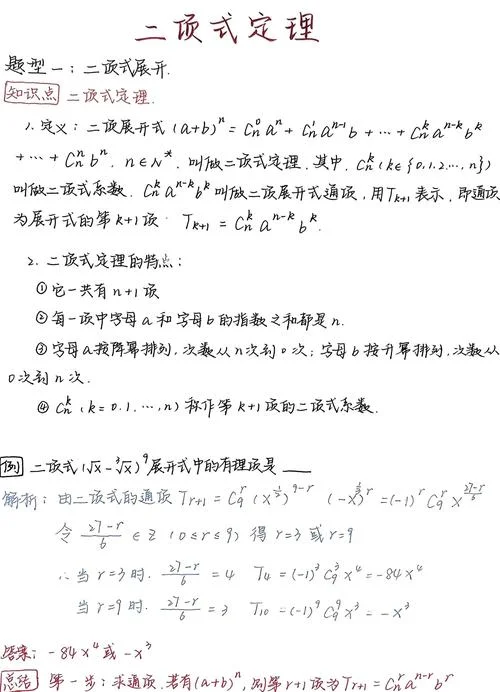 二项式定理
题型一：二项式展开.
知识点 二项式定理.
1. 定义：二项展开式 (a+b)ⁿ = Cₙ⁰aⁿ + Cₙ¹aⁿ⁻¹b + … + Cₙᵏaⁿ⁻ᵏbᵏ
+ … + Cₙⁿbⁿ, n∈N*, 叫做二项式定理, 其中, Cₙᵏ(k∈{0,1,2…,n})
叫做二项式系数. Cₙᵏaⁿ⁻ᵏbᵏ叫做二项展开式通项, 用Tₖ₊₁表示, 即通项
为展开式的第k+1项. Tₖ₊₁ = Cₙᵏaⁿ⁻ᵏbᵏ.
2. 二项式定理的特点：
①它一共有n+1项
②每一项中字母a和字母b的指数之和都是n.
③字母a按降幂排列, 次数从n次到0次；字母b按升幂排列, 次数从
0次到n次.
④Cₙᵏ(k=0.1.…,n)称作第k+1项的二项式系数.
例 二项式(√x-³√x)⁹展开式中的有理项是____
解析：由二项式的通项Tr+1 = C₉ʳ(x^{1/2})^{9-r} (-x^{1/3})^r = (-1)^r C₉ʳ x^{(27-r)/6}
令 (27-r)/6 ∈ Z (0≤r≤9) 得 r=3 或 r=9
∴当 r=3时. (27-r)/6 = 4 T₄=(-1)³C₉³x⁴=-84x⁴
当 r=9时. (27-r)/6 = 3 T₁₀=(-1)⁹C₉⁹x³=-x³
答案：-84x⁴或-x³
总结 第一步：求通项, 若有(a+b)ⁿ, 则第r+1项为Tr+1=Cₙʳaⁿ⁻ʳbʳ